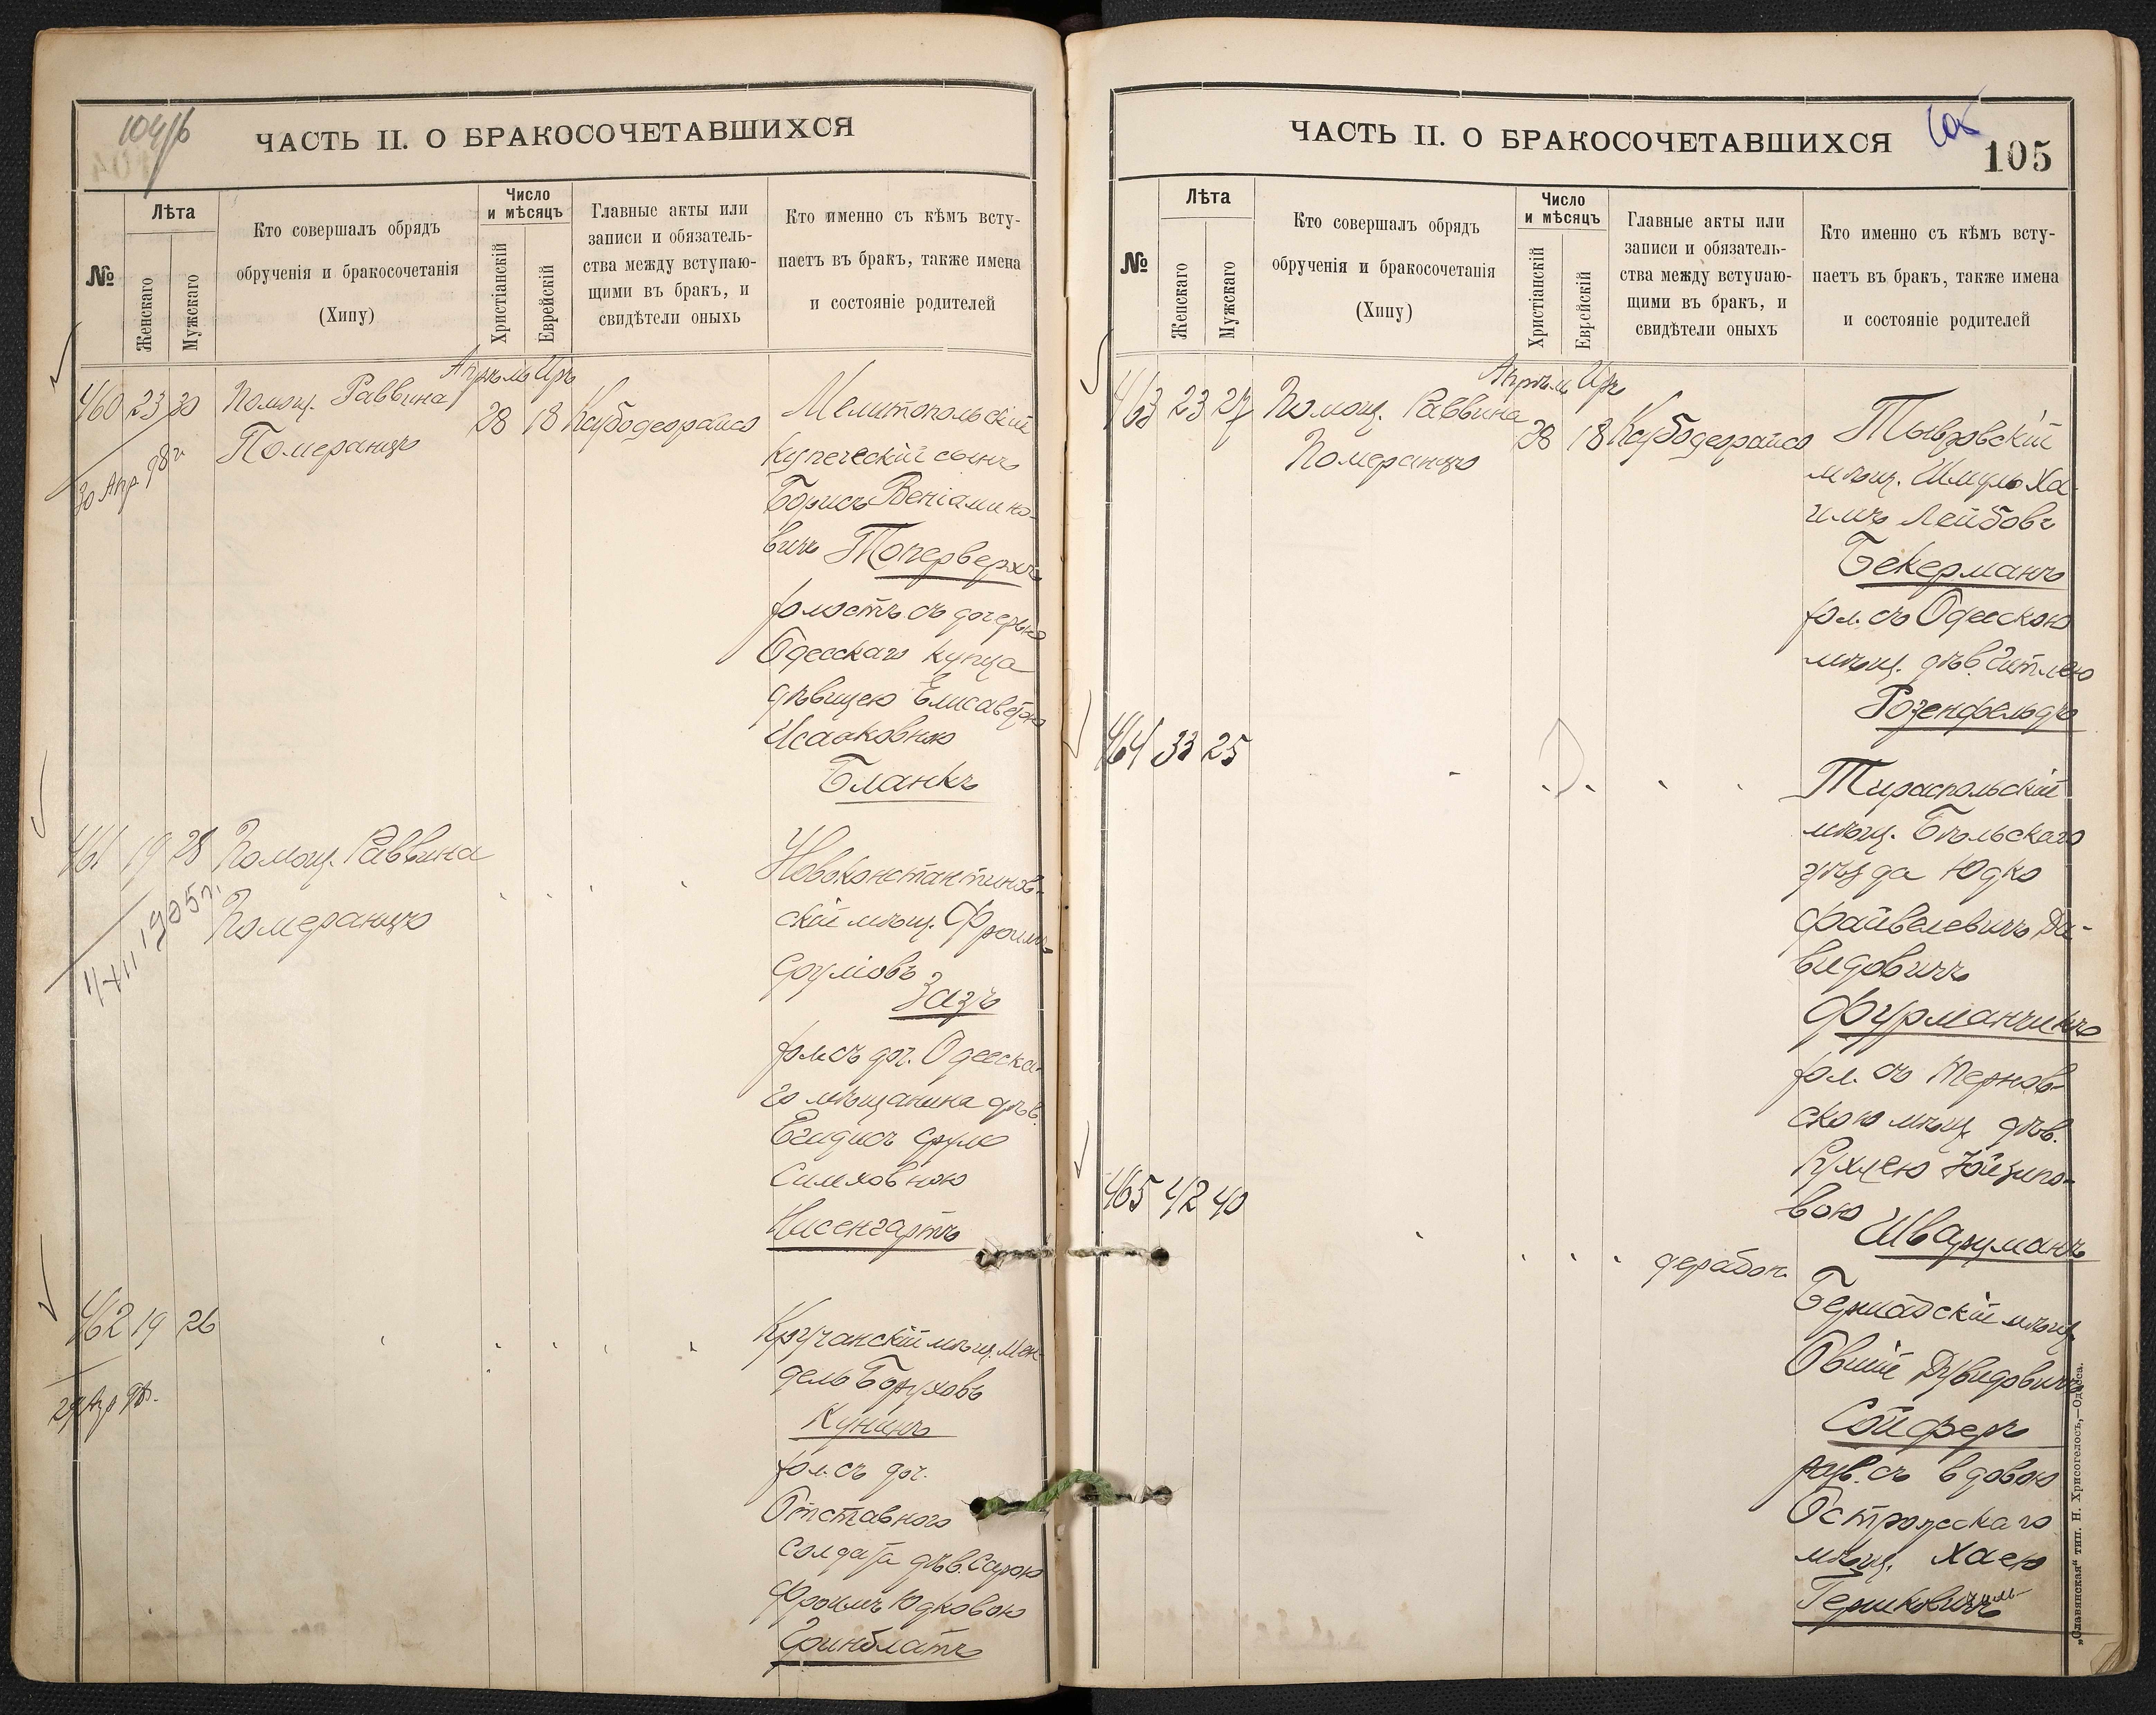 104/б
ЧАСТЬ II. О БРАКОСОЧЕТАВШИХСЯ
№
Лѣта
Женскаго
Мужскаго
Кто совершалъ обрядъ
обрученія и бракосочетанія
(Хипу)
Число
и мѣсяцъ
Христіанскій
Еврейскій
Главные акты или
записи и обязатель-
ства между вступаю-
щими въ бракъ, и
свидѣтели оныхъ
Кто именно съ кѣмъ всту-
паетъ въ бракъ, также имена
и состояніе родителей
Апрѣль Иръ
460 23 30 Помощ. Раввина 28 18
Померанцъ
30 Апр 98 г
Мелитопольскій
купеческій сынъ
Борисъ Веніамино-
вичъ Топервержъ
холостъ съ дочерью
Одесскаго купца
дѣвицею Елисаветою
Исааковною
Бланкъ
461 19 28 Помощ. Раввина
Померанцъ
1905 г.
Новоконстантинов-
скій мѣщ. Фроимъ
Сруліовъ
Зазъ
хол. съ доч. Одесска-
го мѣщанина дѣв.
Срул
Симховною
Нисенгартъ
462 19 26
29 Апр 98.
Кручанскій мѣщ. Мен-
дель Боруховъ
Кунинъ
хол. съ доч.
Отставного
солдата дѣв. Сарою
Фроимъ Юдковою
Гринблатъ
ЧАСТЬ II. О БРАКОСОЧЕТАВШИХСЯ
105
105
№
Лѣта
Женскаго
Мужскаго
Кто совершалъ обрядъ
обрученія и бракосочетанія
(Хипу)
Число
и мѣсяцъ
Христіанскій
Еврейскій
Главные акты или
записи и обязатель-
ства между вступаю-
щими въ бракъ, и
свидѣтели оныхъ
Кто именно съ кѣмъ всту-
паетъ въ бракъ, также имена
и состояніе родителей
Апрѣль Иръ
463 23 27 Помощ. Раввина 28 18
Померанцъ
Тывровскій
мѣщ. Шмуль Ха-
имъ Лейбовъ
Бекерманъ
хол. съ Одесскою
мѣщ. дѣв. Гитлею
Розенфельдъ
464 33 25
Тираспольскій
мѣщ. Бѣльскаго
уѣзда Юдко
Файвелевичъ Да-
видовичъ
Фурманчикъ
хол. съ Тернов-
скою мѣщ. дѣв.
Рухлею
вою
Шварцманъ
465 42 40
дерабон.
Бершадскій мѣщ.
Овшій Дувидовичъ
Сойферъ
разв. съ вдовою
Остропскаго
мѣщ. Хаею
Гершковичъ
„Славянская“ тип. Н. Хрисогелосъ,—Одесса.